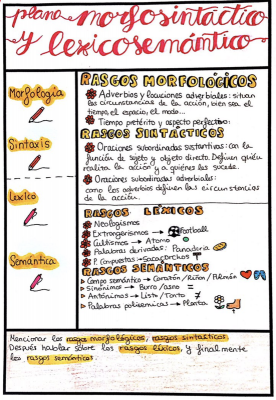 plano morfosintáctico
y lexicosemántico
Morfología
Sintaxis
Léxico
Semántica
RASGOS MORFOLÓGICOS
Adverbios y locuciones adverbiales: sitúan
las circunstancias de la acción, bien sea el
tiempo, el espacio, el modo...
Tiempo pretérito y aspecto perfectivo:
RASGOS SINTÁCTICOS
Oraciones subordinadas sustantivas: con la
función de sujeto y objeto directo. Definen quién
realiza la acción y a quiénes les sucede.
Oraciones subordinadas adverbiales:
como los adverbios definen las circunstancias
de la acción.
RASGOS LÉXICOS
Neologismos
Extranjerismos → Football
Cultismos → Átomo
Palabras derivadas: Panadería
P. Compuestas → Sacacorchos
RASGOS SEMÁNTICOS
Campo semántico → Corazón/Riñón/Pulmón
Sinónimos → Burro/asno =
Antónimos → Listo/Tonto ≠
Palabras polisémicas → Planta
Mencionar los rasgos morfológicos, rasgos sintácticos.
Después hablar sobre los rasgos léxicos, y finalmente
los rasgos semánticos.